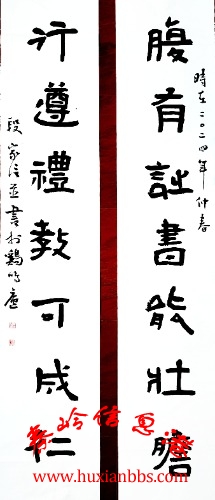 腹有詩書能壯膽
時在二〇二四年仲春
行遵禮教可成仁
段家信並書於鷄鳴廬
www.huxianbbs.com